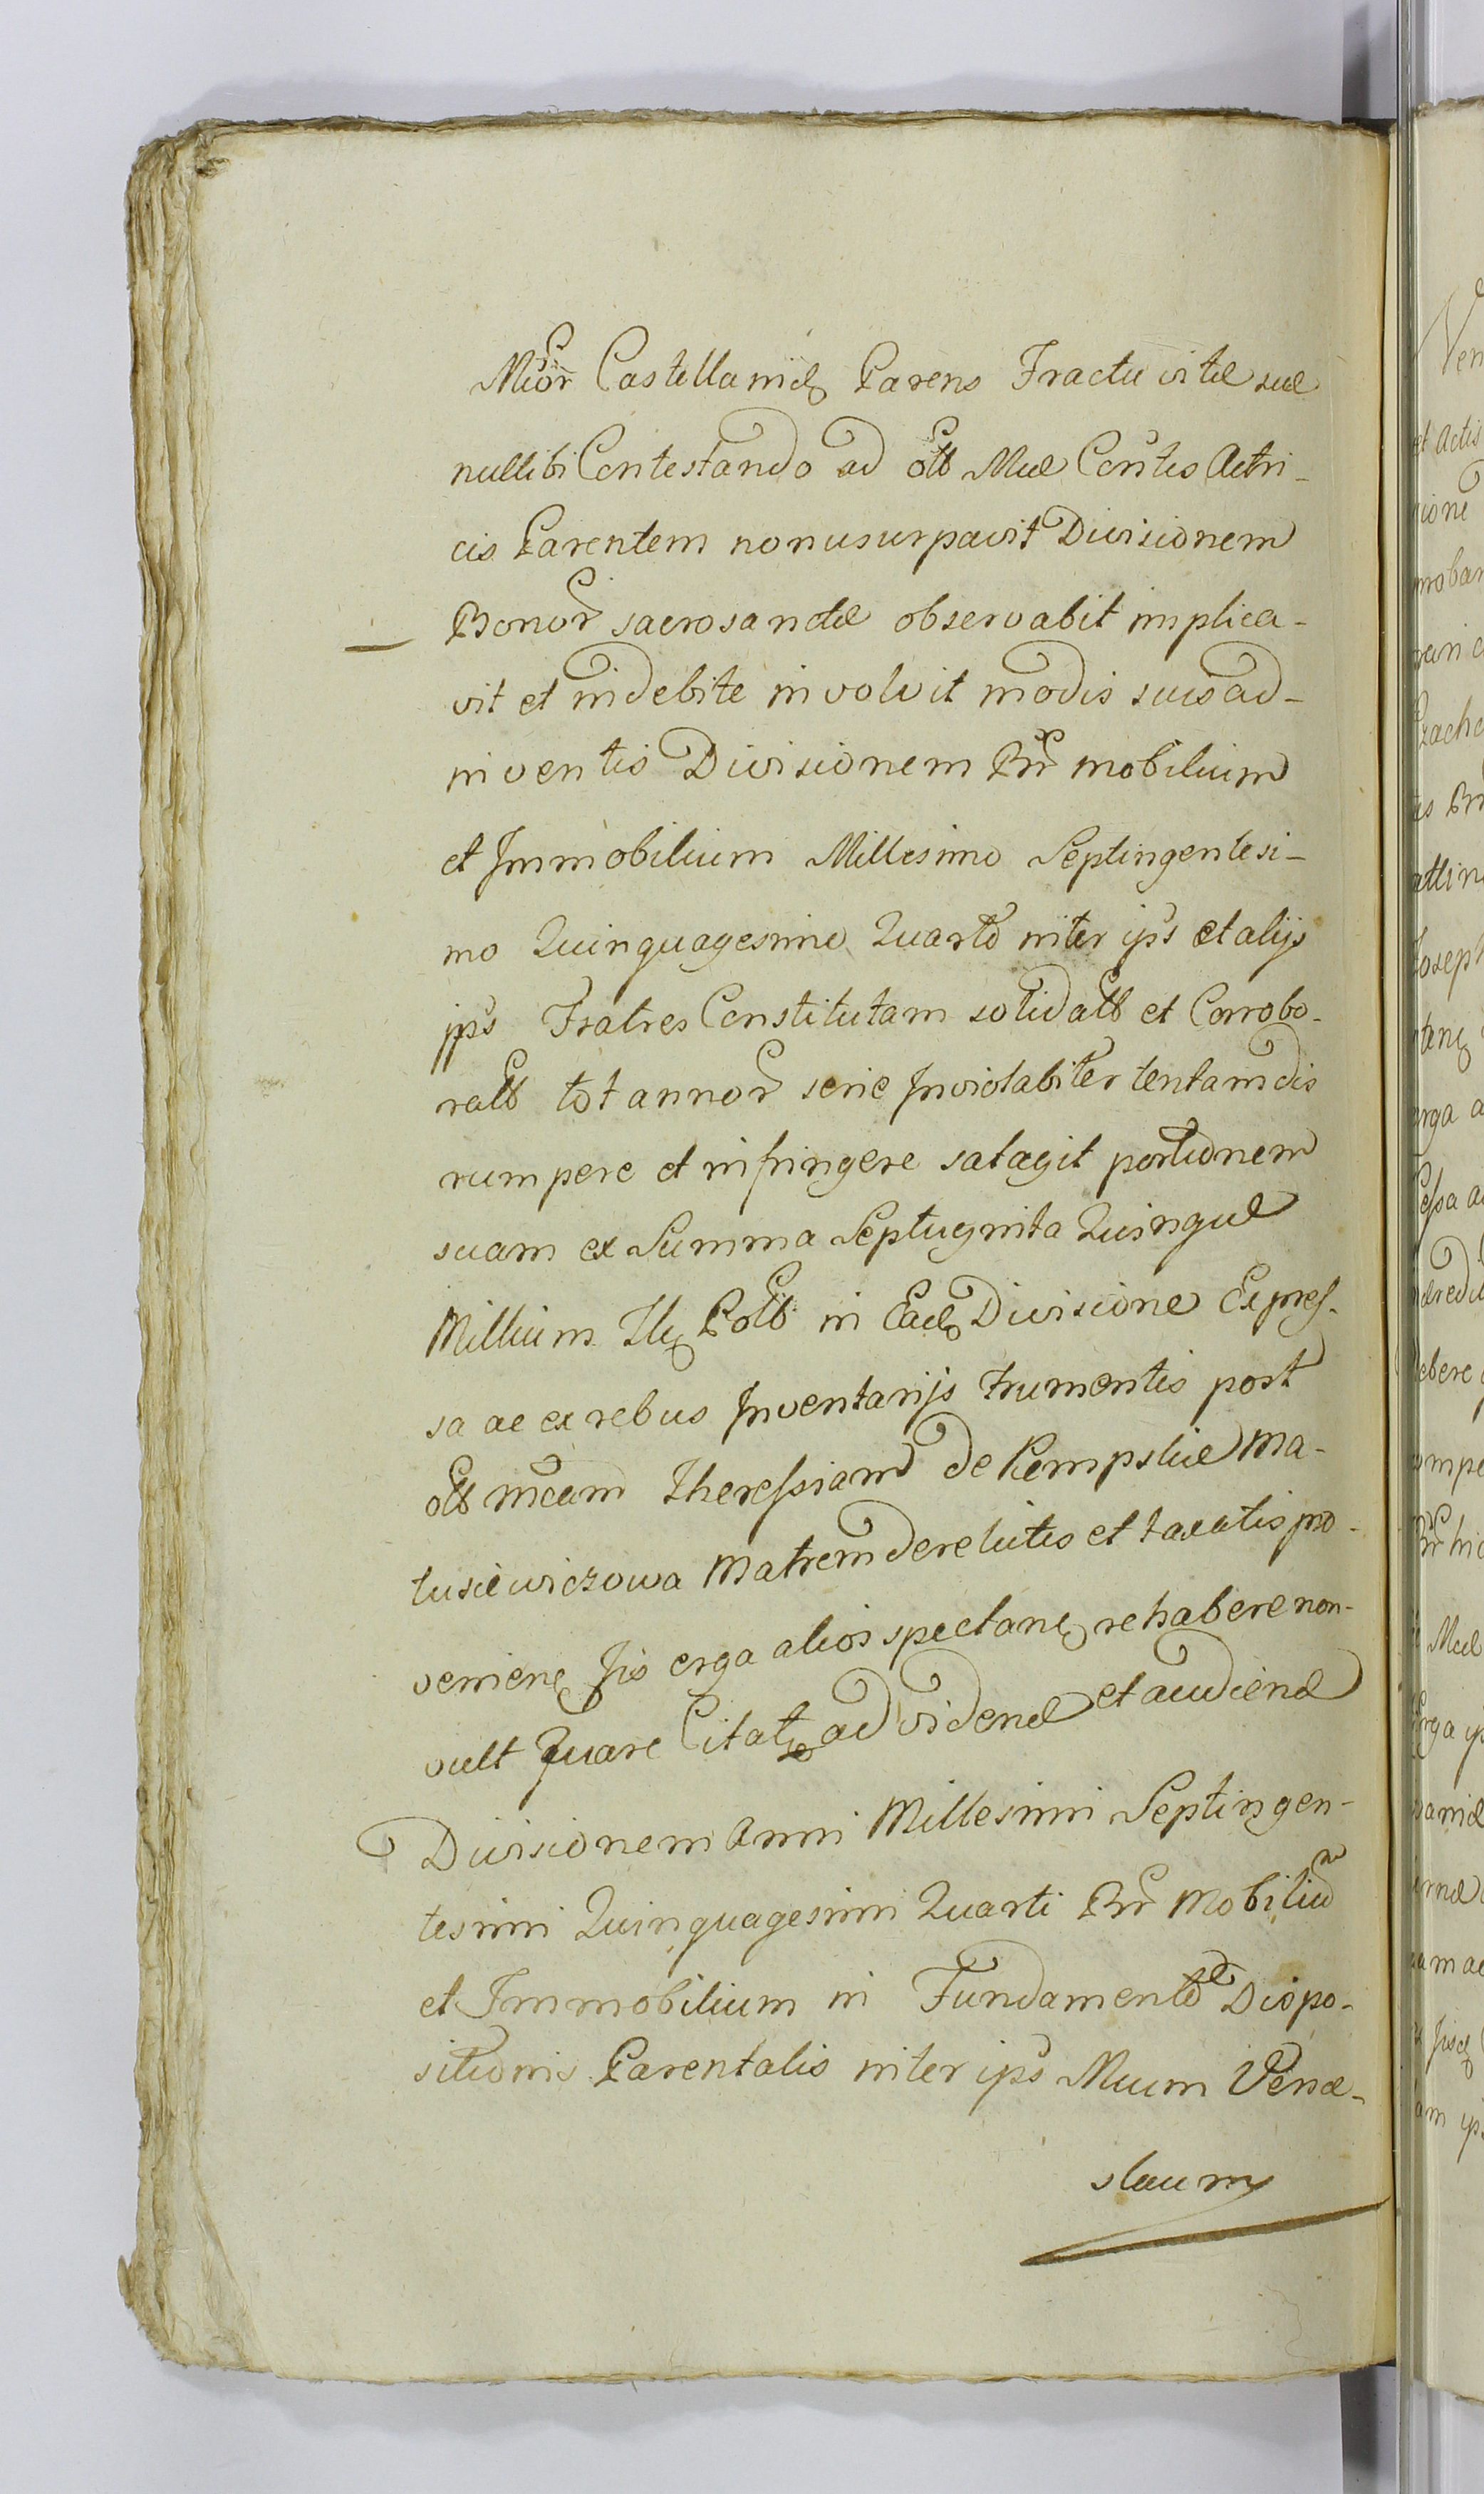 Mior Castellanidę Parens Tractu vitæ suæ
nullibi Contestando ad olb Mæ Contis Actri-
cis Parentem non usurpavit Divisionem
Bonor sacrosanctæ observabit implica-
vit et indebite involvit modis suis ad-
inventis Divisionem Bnr mobilium
et Immobilium Millesimo Septingentesi-
mo Quinquagesimo Quarto inter ips et alijs
ips Fratres Constitutam solidatb et Corrobo-
ratb tot annor serie Inviolabiter tentam dis
rumpere et infringere satagit portionem
suam ex Summa Septuginta Quinque
Millium flę Polb in Eadę Divisione Expres-
sa ac ex rebus Inventarijs frumentis post
olb Mcam Theressiam de Kempskie Ma-
tusiewiczowa Matrem derelictis et taxatis pro-
venienę sis erga alios spectanę rehabere non-
vult Quare Citatę ad videnđ et audienđ
Divisionem Anni Millesimi Septingen-
tesimi Quinquagesimi Quarti Bnr Mobilium
et Immobilium in Fundamento Dispo-
sitionis Parentalis inter ips Mcum Vence-
slaum